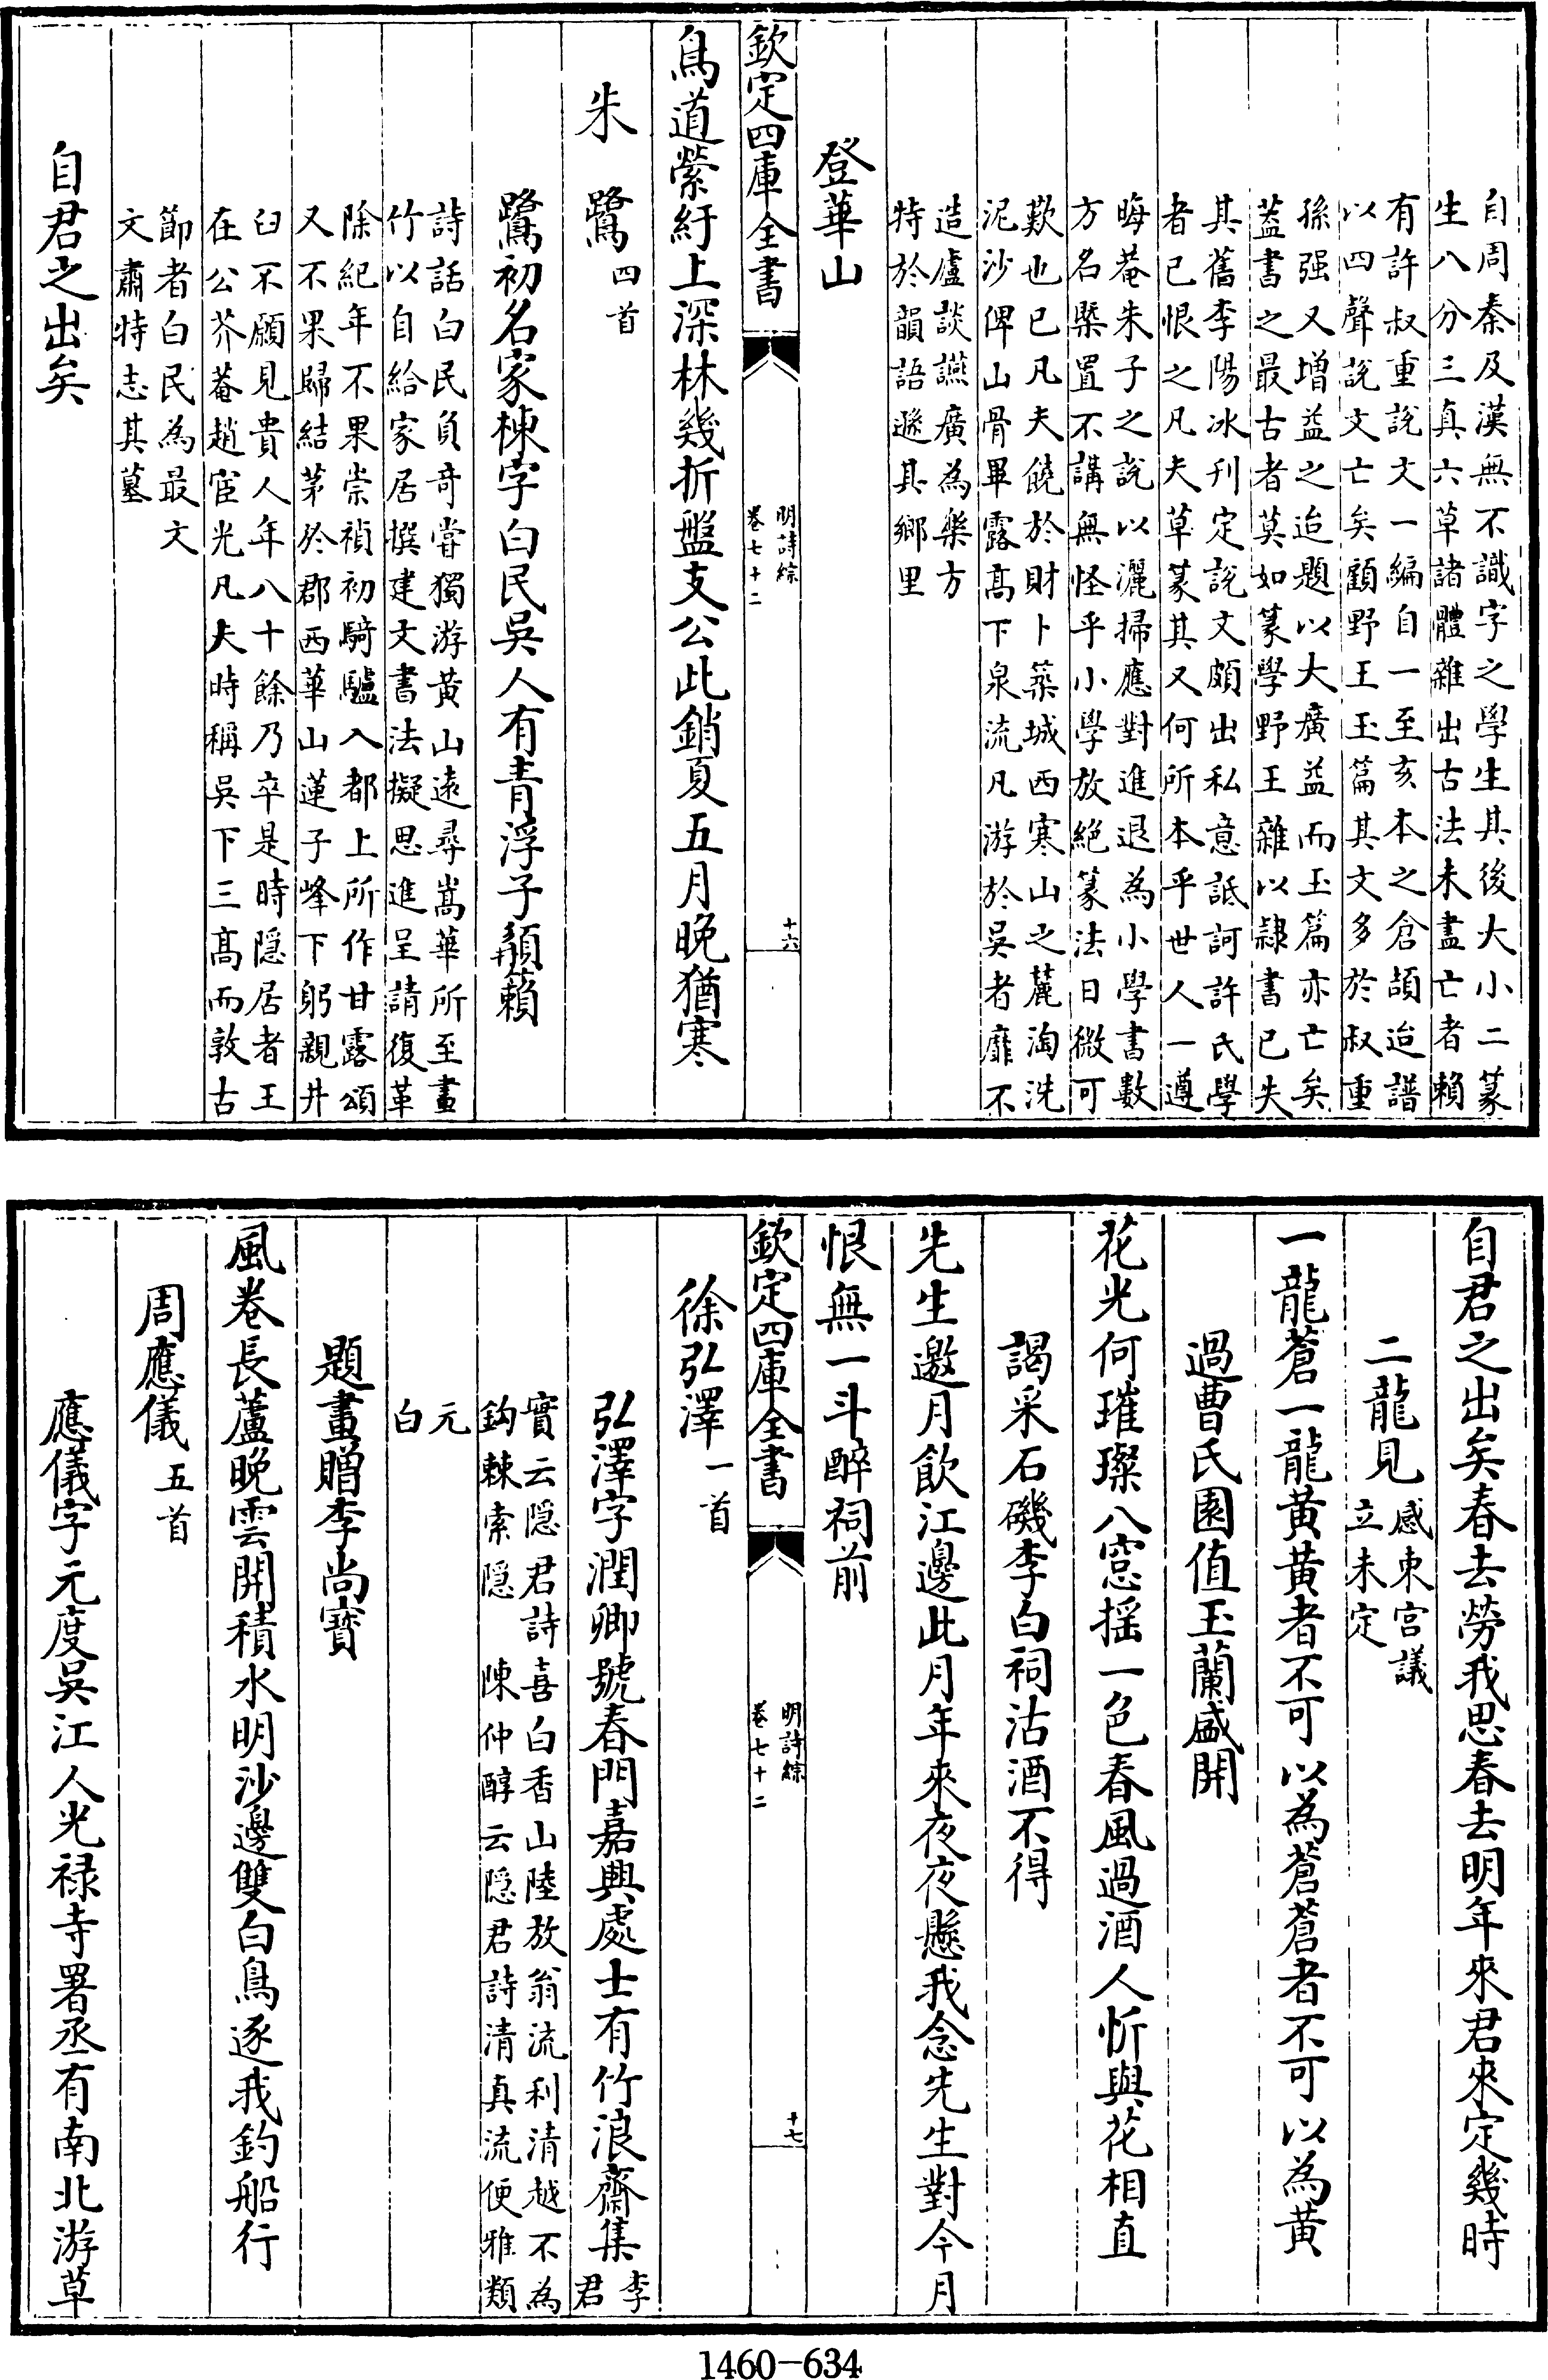 自周秦及漢無不識字之學生其後大小二篆
生八分三真六草諸體雜出古法未盡亡者賴
有許叔重說文一編自一至亥本之倉頡迨譜
以四聲說文亡矣顧野王玉篇其文多於叔重
孫强又增益之迨題以大廣益而玉篇亦亡矣
葢書之最古者莫如篆學野王雜以隸書已失
其舊李陽冰刊定說文頗出私意詆訶許氏學
者已恨之凡夫草篆其又何所本乎世人一遵
晦菴朱子之說以灑掃應對進退為小學書數
方名槩置不講無怪乎小學放絶篆法日微可
歎也已凡夫饒於財卜築城西寒山之麓淘洗
泥沙俾山骨畢露髙下泉流凡游於吳者靡不
造廬談讌廣為樂方
特於韻語遜其鄉里
登華山
欽定四庫全書
明詩綜
卷七十二
十六
鳥道縈紆上深林幾折盤支公此銷夏五月晚猶寒
朱鷺四首
鷺初名家棟字白民吳人有青浮子頫籟
詩話白民負奇嘗獨游黄山遠尋嵩華所至畫
竹以自給家居撰建文書法擬思進呈請復革
除紀年不果崇禎初騎驢入都上所作甘露頌
又不果歸結茅於郡西華山蓮子峰下躬親井
臼不願見貴人年八十餘乃卒是時隠居者王
在公芥菴趙宧光凡夫時稱吳下三髙而敦古
節者白民為最文
文肅特志其墓
自君之出矣
自君之出矣春去勞我思春去明年來君來定幾時
二龍見感東宫議
立未定
一龍蒼一龍黄黄者不可以為蒼蒼者不可以為黄
過曹氏園值玉蘭盛開
花光何璀璨八窓摇一色春風過酒人忻與花相直
謁采石磯李白祠沽酒不得
先生邀月飲江邊此月年來夜夜懸我念先生對今月
恨無一斗醉祠前
欽定四庫全書
明詩綜
卷七十二
十七
徐弘澤一首
弘澤字潤卿號春門嘉興處士有竹浪齋集李君
實云隠君詩喜白香山陸放翁流利清越不為
鈎棘索隠 陳仲醇云隠君詩清真流便雅類
元
白
題畫贈李尚寳
風卷長蘆晚雲開積水明沙邊雙白鳥逐我釣船行
周應儀五首
應儀字元度吳江人光禄寺署丞有南北游草
1460-634